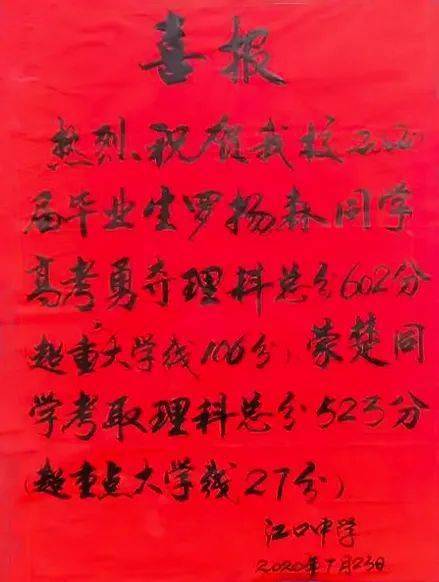 喜报
热烈祝贺我校2020
届毕业生罗扬森同学
高考勇夺理科总分602分
(超重大学线106分)蒙楚同
学考取理科总分523分
(超重点大学线27分)
江口中学
2020年7月23日